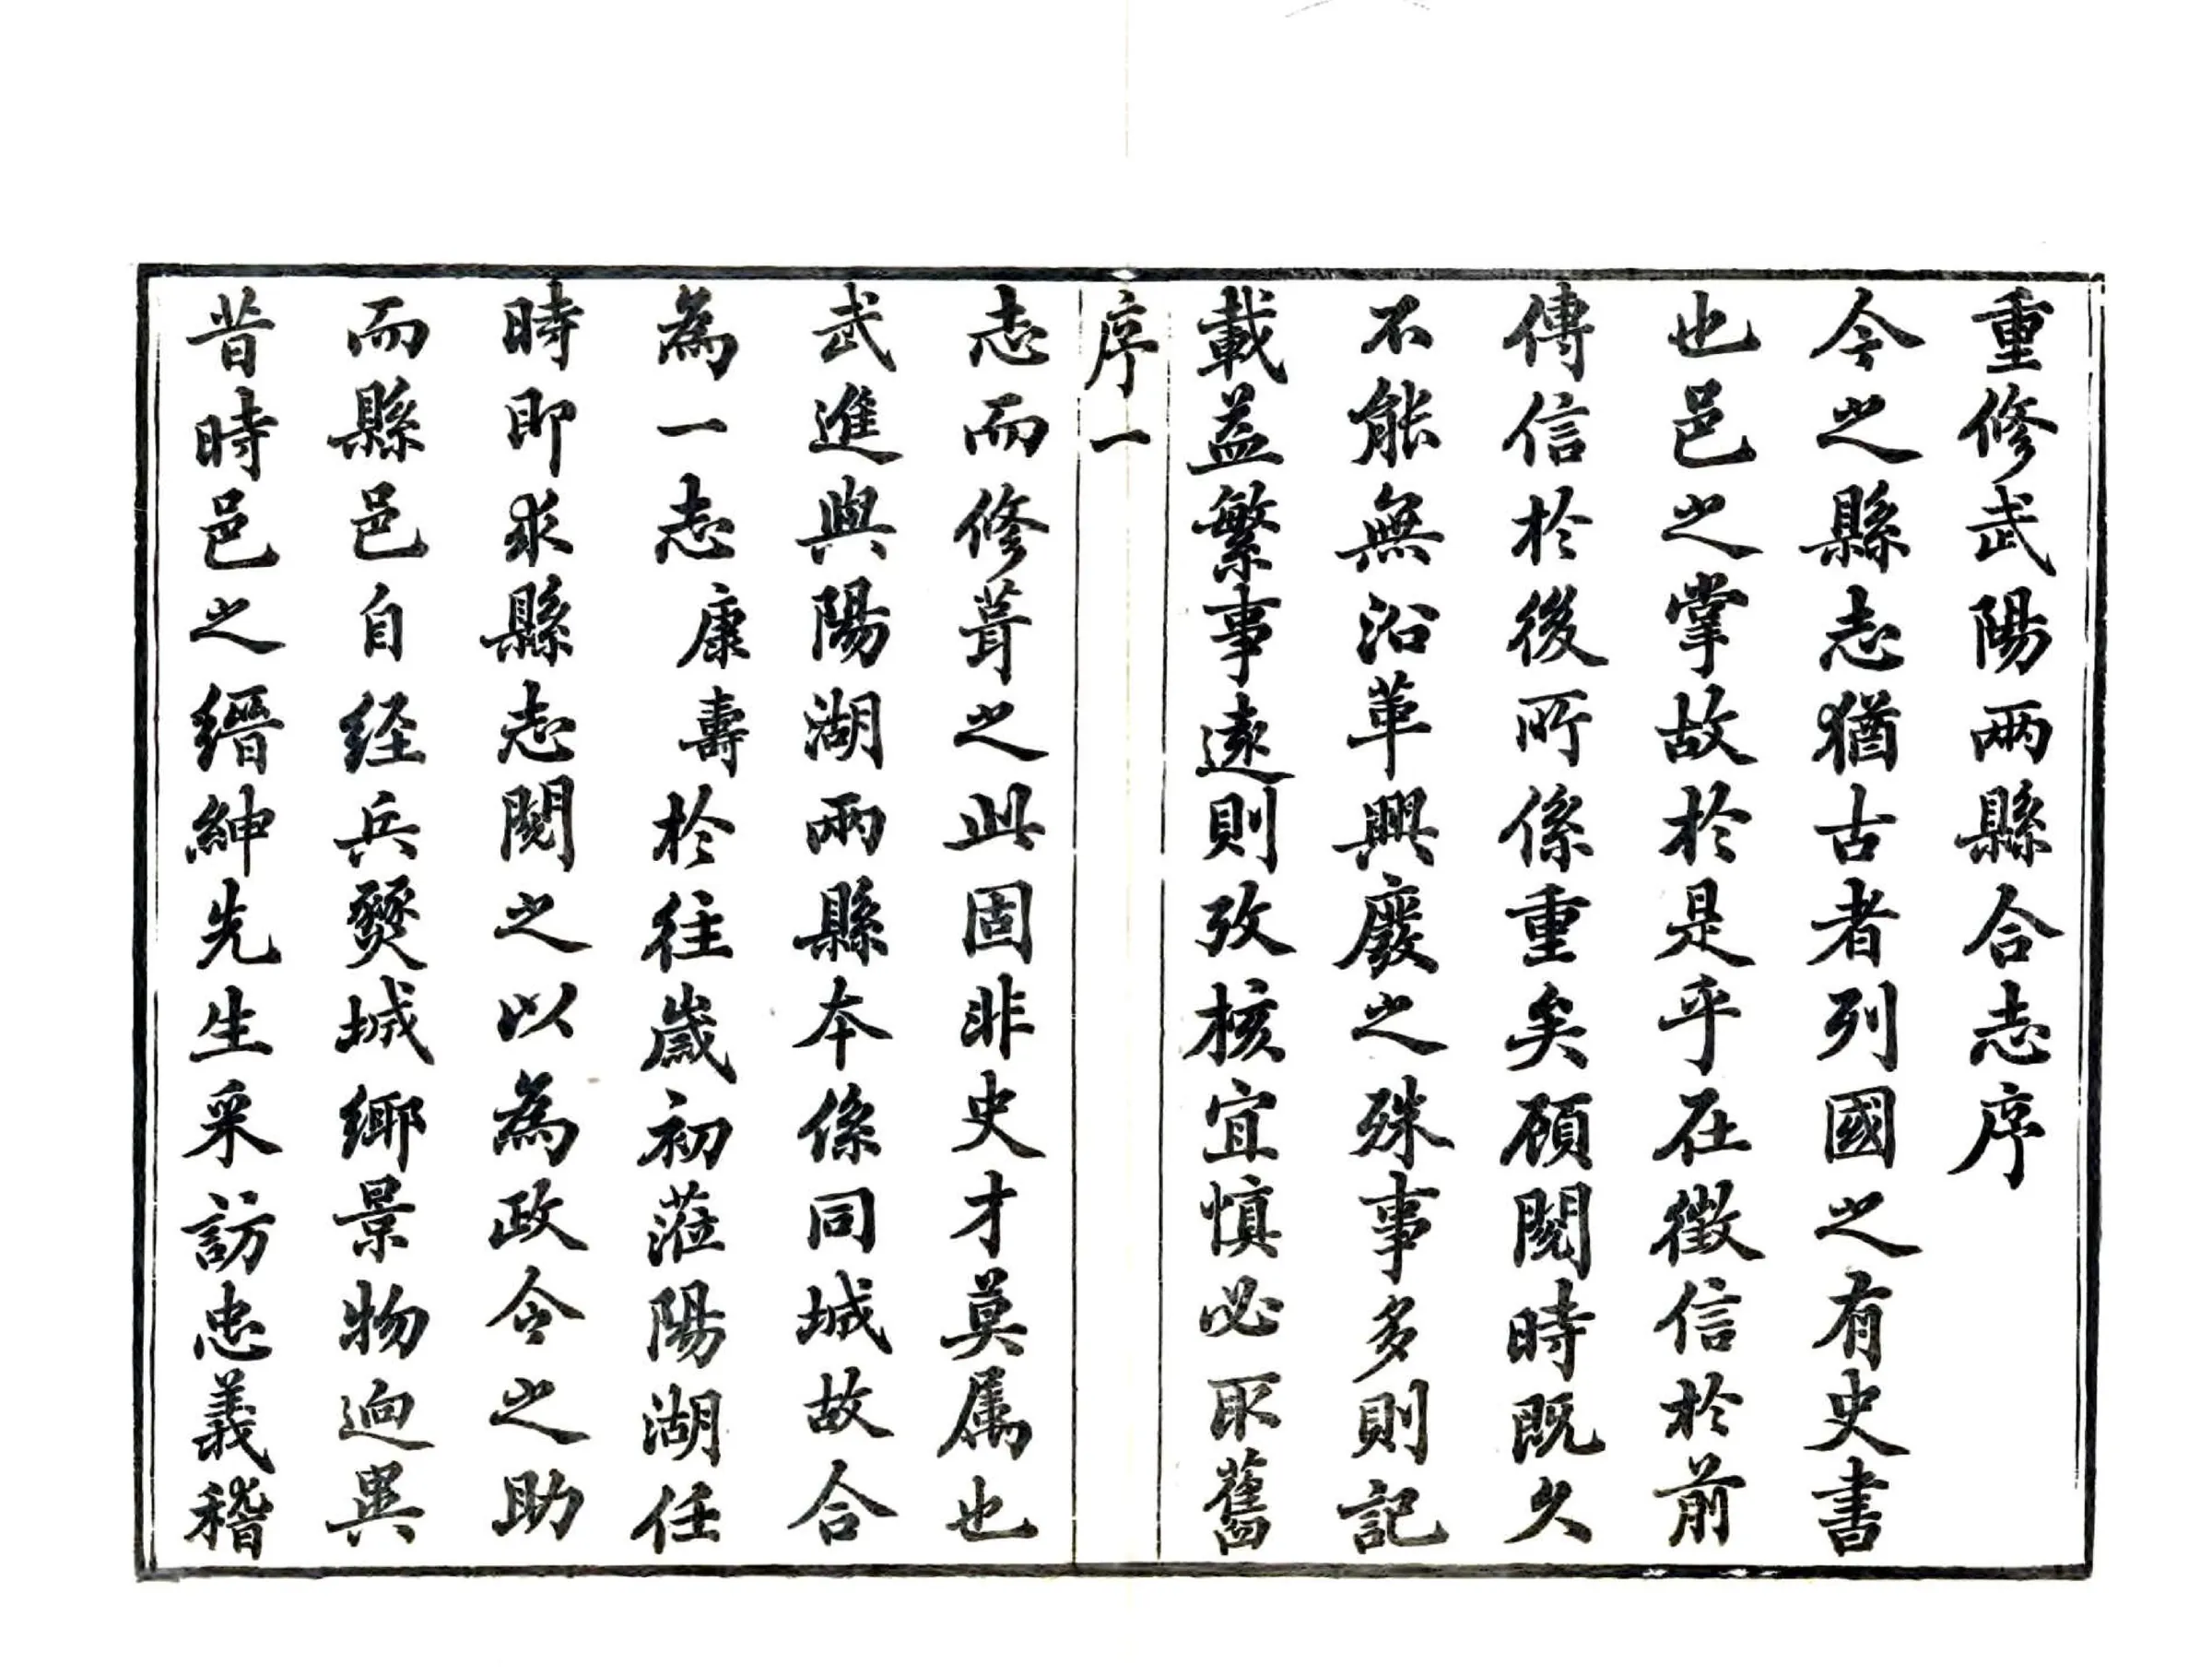 重修武陽兩縣合志序
今之縣志猶古者列國之有史書
也邑之掌故於是乎在徵信於前
傳信於後所係重矣顧閱時既久
不能無沿革興廢之殊事多則記
載益繁事遠則攷核宜慎必取舊
序一
志而修葺之此固非史才莫属也
武進與陽湖兩縣本係同城故合
為一志康壽於往歲初蒞陽湖任
時即求縣志閱之以為政令之助
而縣邑自经兵燹城鄉景物迥異
昔時邑之縉紳先生采訪忠義稽